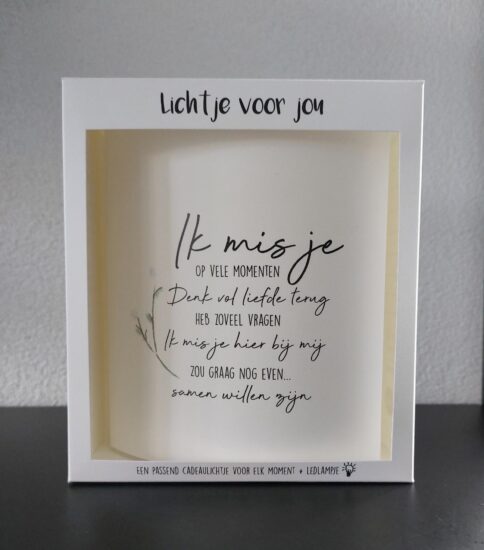 Lichtje voor jou
Ik mis je
OP VELE MOMENTEN
Denk vol liefde terug
HEB ZOVEEL VRAGEN
Ik mis je hier bij mij
ZOU GRAAG NOG EVEN...
samen willen zijn
EEN PASSEND CADEAULICHTJE VOOR ELK MOMENT + LEDLAMPJE